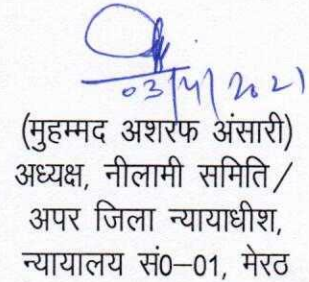 03/4/2021
(मुहम्मद अशरफ अंसारी)
अध्यक्ष, नीलामी समिति/
अपर जिला न्यायाधीश,
न्यायालय सं0-01, मेरठ